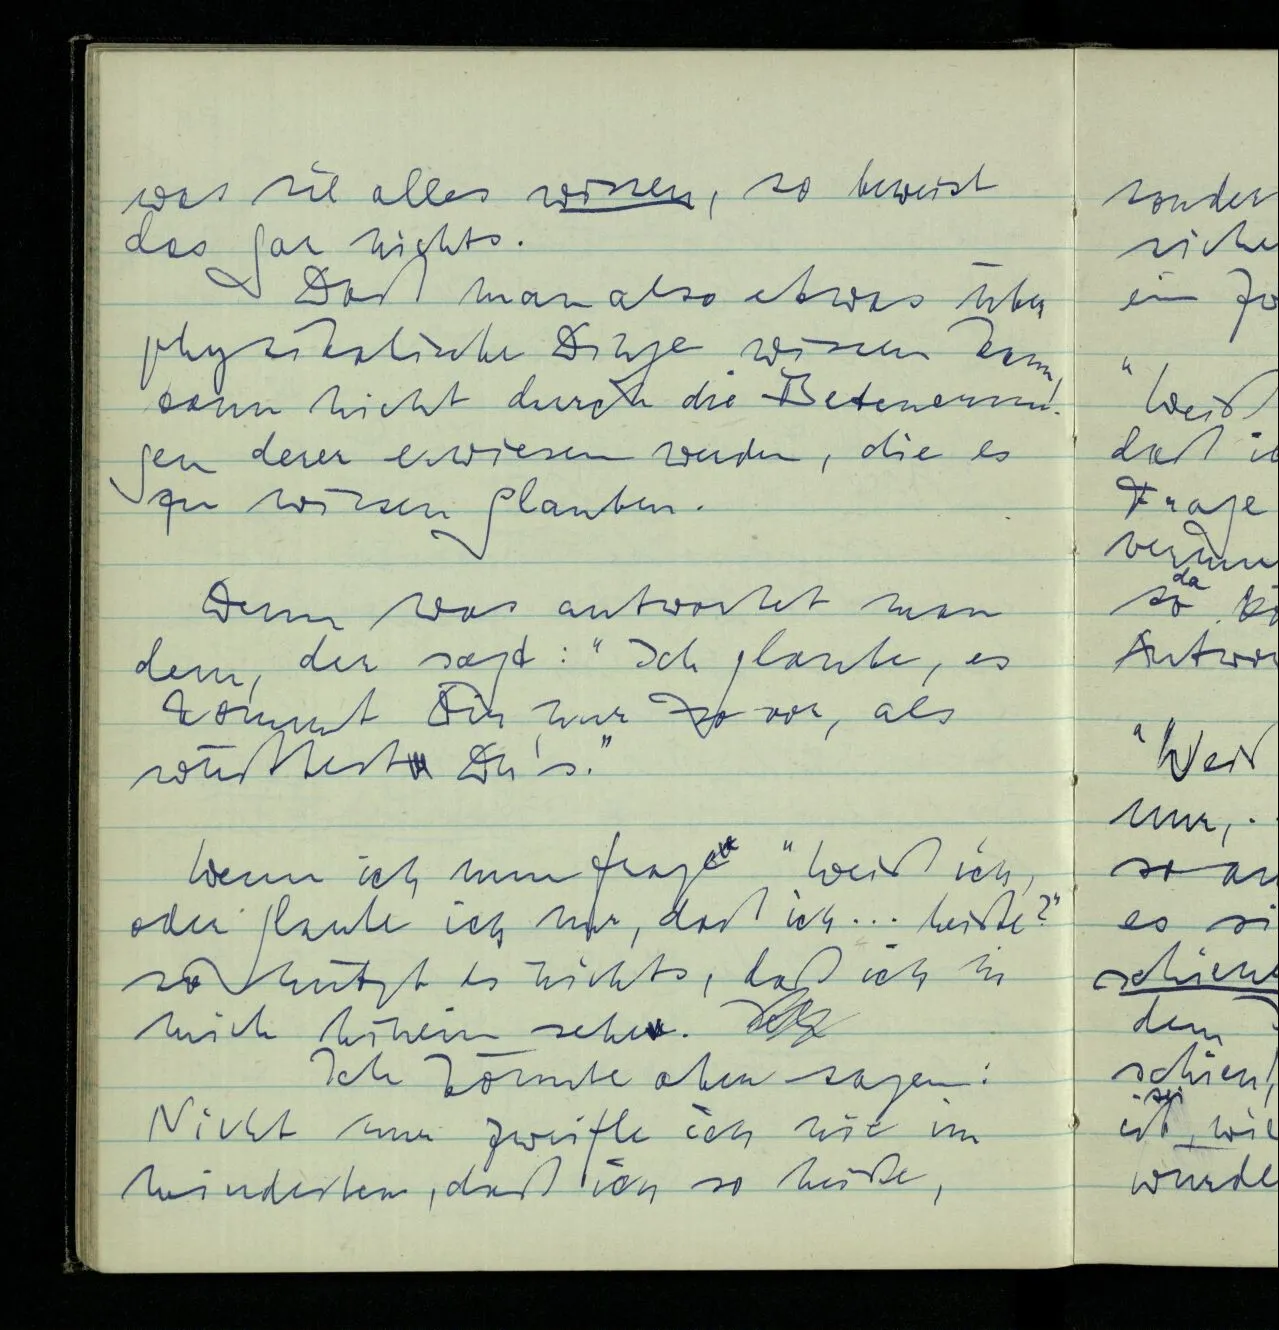 was sie alles wissen, so beweist
das gar nichts.
Daß man also etwas über
physikalische Dinge wissen kann,
kann nicht durch die Beteuerun-
gen derer erwiesen werden, die es
zu wissen glauben.
Denn was antwortet man
dem, der sagt: "Ich glaube, es
kommt Dir nur so vor, als
wüßtest Du's."
Wenn ich nun frage "Weiß ich,
oder glaube ich nur, daß ich ... heiße?"
so nützt es nichts, daß ich in
mich hinein sehe.
Ich könnte aber sagen:
Nicht nur zweifle ich nie im
mindesten, daß ich so heiße,
sonder
siche
ein
"Weiß
daß ic
Frage
da
so
Antwor
"Weiß
nur, .
so an
es si
schiene
dem
schien,
sei
ist, wie
wurde